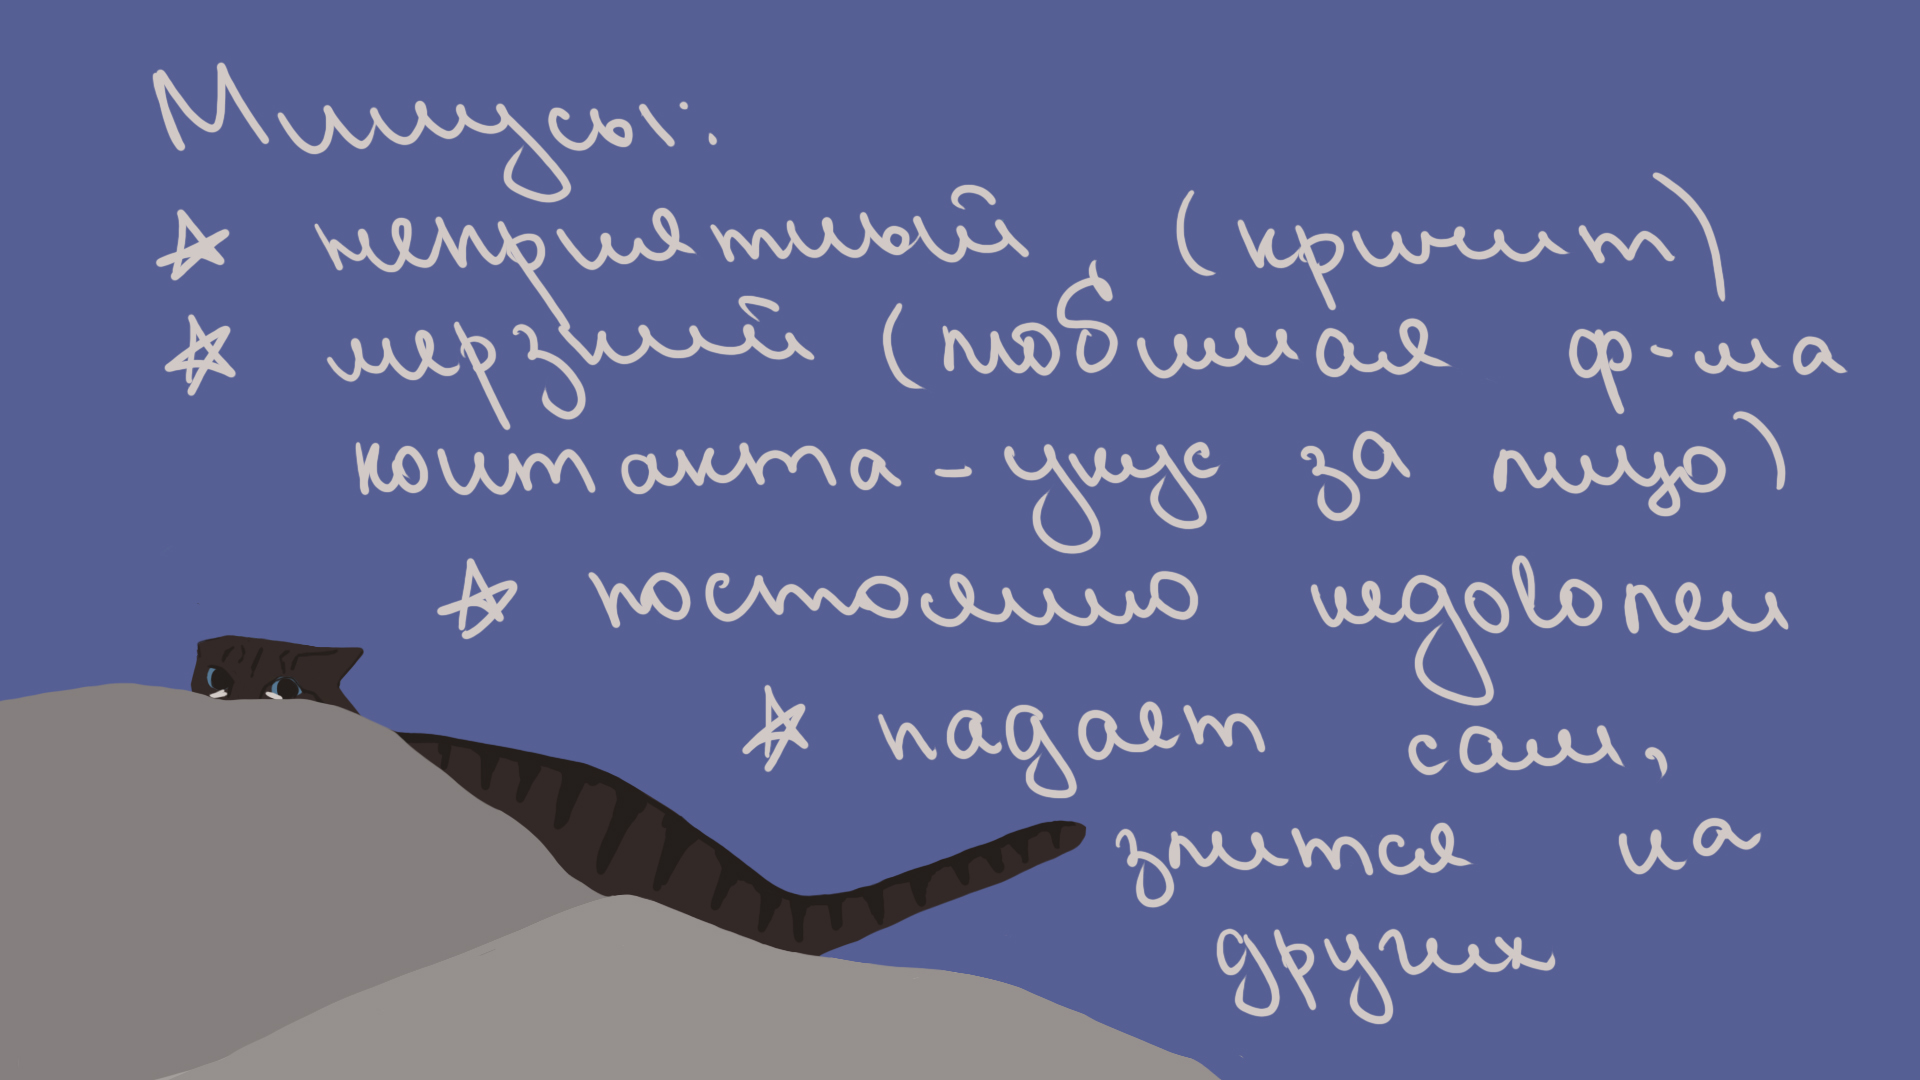 Минусы:
☆ неприятный (кричит)
☆ мерзкий (любимая ф-ма
контакта - укус за лицо)
☆ постоянно недоволен
☆ падает сам,
злится на
других